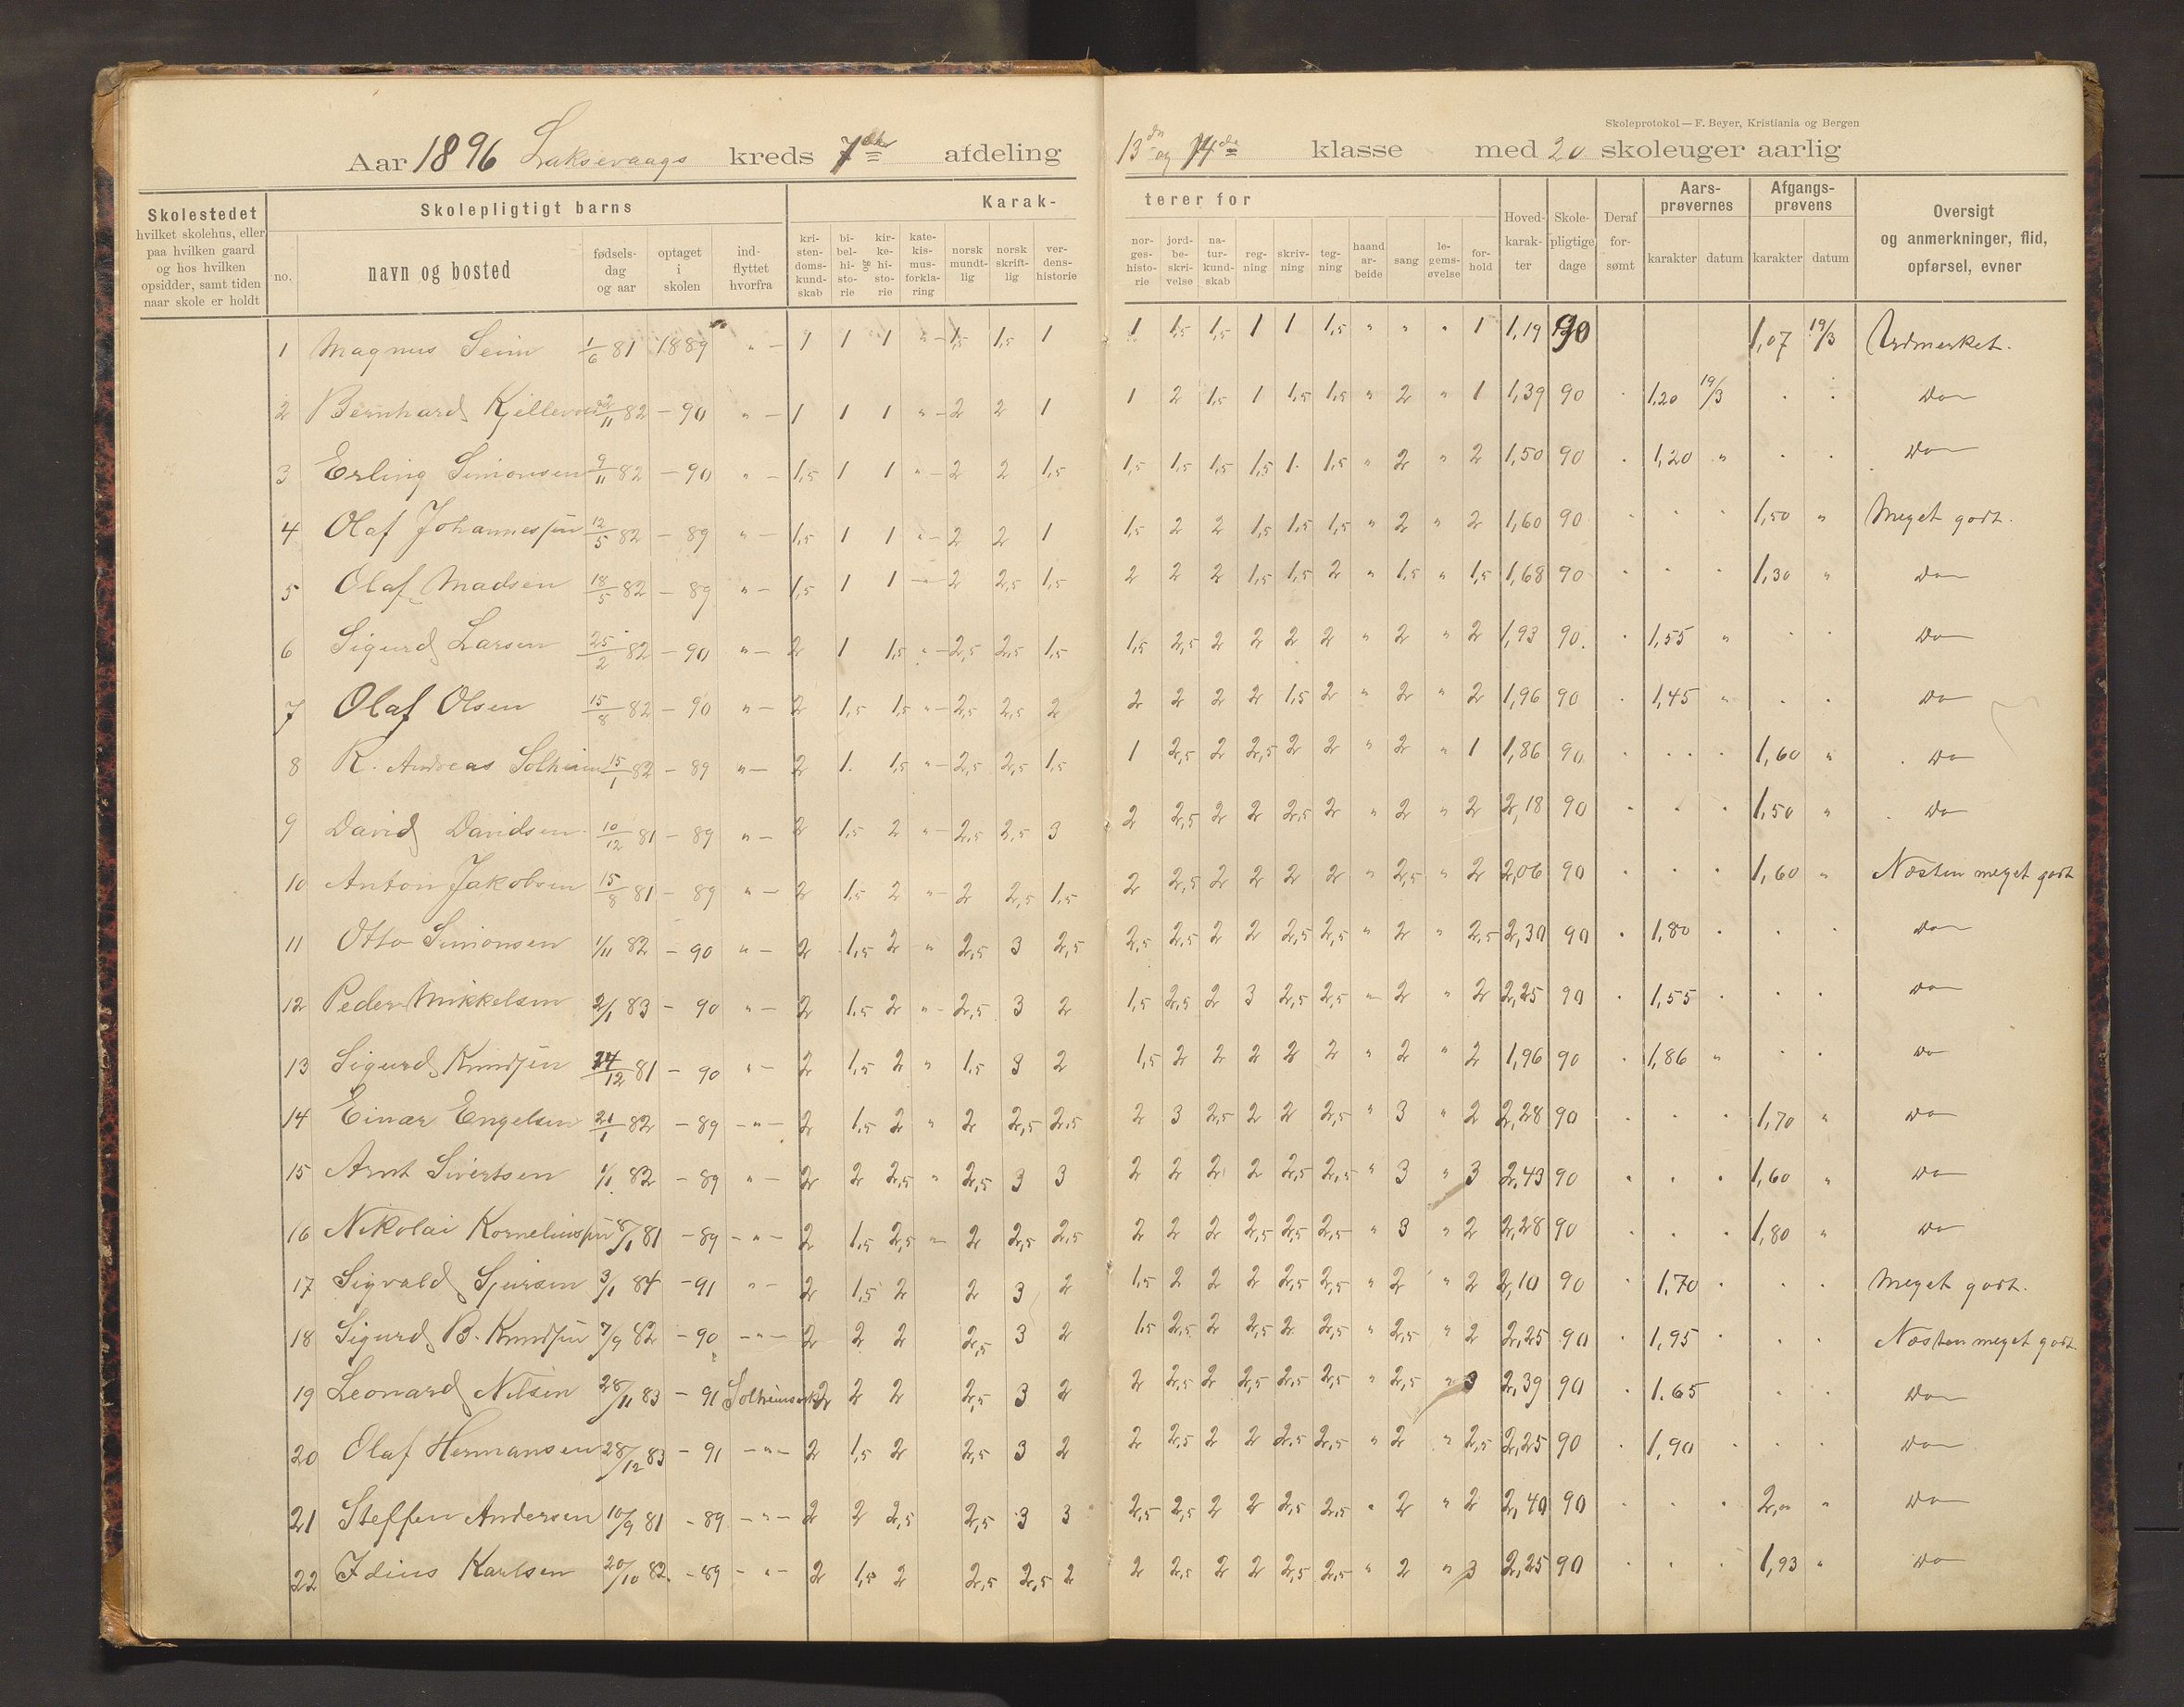 Skoleprotokol — F. Beyer, Kristiania og Bergen
Aar 1896 Laksevaags kreds 7de afdeling 13de og 14de klasse med 20 skoleuger aarlig
Skolestedet hvilket skolehus, eller paa hvilken gaard og hos hvilken opsidder, samt tiden naar skole er holdt
Skolepligtigt barns
no. navn og bosted fødselsdag og aar optaget i skolen indflyttet hvorfra
Karakterer for
kristendomskundskab bibelhistorie og kirkehistorie katekismusforklaring norsk mundtlig norsk skriftlig verdenshistorie norgeshistorie jordbeskrivelse naturkundskab regning skrivning tegning haandarbeide sang legemsøvelse forhold
Hovedkarakter Skolepligtige dage Deraf forsømt
Aarsprøvernes karakter datum Afgangsprøvens karakter datum
Oversigt og anmerkninger, flid, opførsel, evner
1 Magnus Seim 1/6 81 1889 " — 1 1 1 " — 1,5 1,5 1 1 1,5 1,5 1 1 1,5 " " " 1 1,19 90 1,07 19/3 Udmerket.
2 Bernhard 22/11 82 — 90 " — 1 1 1 " — 2 2 1 1 2 1,5 1 1,5 1,5 " 2 " 1 1,39 90 1,20 19/3 Do
3 Erling Simonsen 9/11 82 — 90 " — 1,5 1 1 " — 2 2 1,5 1,5 1,5 1,5 1,5 1 1,5 " 2 " 2 1,50 90 1,20 " Do
4 Olaf Johannessen 12/5 82 — 89 " — 1,5 1 1 " — 2 2 1 1,5 2 2 1,5 1,5 1,5 " 2 " 2 1,60 90 1,50 " Meget godt.
5 Olaf Madsen 18/5 82 — 89 " — 1,5 1 1 — 2 2,5 1,5 2 2 2 1,5 1,5 2 " 1,5 " 1,5 1,68 90 1,30 " Do
6 Sigurd Larsen 25/2 82 — 90 " — 2 1 1,5 " — 2,5 2,5 1,5 1,5 2,5 2 2 2 2 " 2 " 2 1,93 90. 1,55 " Do
7 Olaf Olsen 15/8 82 — 90 " — 2 1,5 1,5 " — 2,5 2,5 2 2 2 2 2 1,5 2 " 2 " 2 1,96 90 1,45 " Do
8 R. Andreas Solheim 15/1 82 — 89 " — 2 1. 1,5 " — 2,5 2,5 1,5 1 2,5 2 2,5 2 2 " 2 " 1 1,86 90 1,60 " Do
9 David Davidsen 10/12 81 — 89 " — 2 1,5 2 " — 2,5 2,5 3 2 2,5 2 2 2,5 2 " 2 " 2 2,18 90 1,50 " Do
10 Anton Jakobsen 15/8 81 — 89 " — 2 1,5 2 " — 2 2,5 1,5 2 2,5 2 2 2 2 " 2,5 " 2 2,06 90 1,60 " Næsten meget godt
11 Otto Simonsen 1/11 82 — 90 " — 2 1,5 2 " 2,5 3 2,5 2,5 2,5 2 2 2,5 2,5 " 2 " 2,5 2,30 90 1,80 Do
12 Peder Mikkelsen 2/1 83 — 90 " — 2 1,5 2 " — 2,5 3 2 1,5 2,5 2 3 2,5 2,5 " 2 " 2 2,25 90 1,55 Do
13 Sigurd Knudsen 24/12 81 — 90 " — 2 1,5 2 " 1,5 3 2 1,5 2 2 2 2 2 " 2 " 2 1,96 90 1,86 " Do
14 Einar Engelsen 21/1 82 — 89 — " — 2 1,5 2 " 2 2,5 2,5 2 3 2,5 2 2 2,5 " 3 " 2 2,28 90 1,70 " Do
15 Arnt Sivertsen 1/1 82 — 89 " — 2 2 2,5 " 2,5 3 3 2 2 2 2 2,5 2,5 " 3 " 3 2,43 90 1,60 " Do
16 Nikolai Korneliussen 8/1 81 — 89 — " — 2 1,5 2,5 — 2 2,5 2,5 2 2 2 2,5 2,5 2,5 " 3 " 2 2,28 90 1,80 " Do
17 Sigvald Sjursen 3/1 84 — 91 " — 2 1,5 2 2 3 2 1,5 2 2 2 2,5 2,5 " 2 " 2 2,10 90 1,70 Meget godt.
18 Sigurd B. Knudsen 7/9 82 — 90 — " — 2 2 2 2,5 3 2 1,5 2,5 2 2,5 2 2,5 " 2,5 " 2 2,25 90 1,95 Næsten meget godt
19 Leonard Nilsen 28/11 83 — 91 2 2 2 2,5 3 2 2 2,5 2 2,5 2,5 2,5 " 2,5 " 3 2,39 90 1.65 Do
20 Olaf Hermansen 28/12 83 — 91 — " — 2 1,5 2 2,5 3 2 2 2,5 2 2 2,5 2,5 " 2 " 2,5 2,25 90 1,90 Do
21 Steffen Andersen 10/9 81 — 89 — " — 2 2 2,5 2,5 3 3 2,5 2,5 2 2 2,5 2,5 " 2 " 2 2,40 90 2," " Do
22 Karlsen 20/10 82. — 89 — " — 2 1,5 2 2,5 2,5 2 2 2,5 2 2 2,5 2,5 " 2 " 3 2,25 90 1,93 " Do